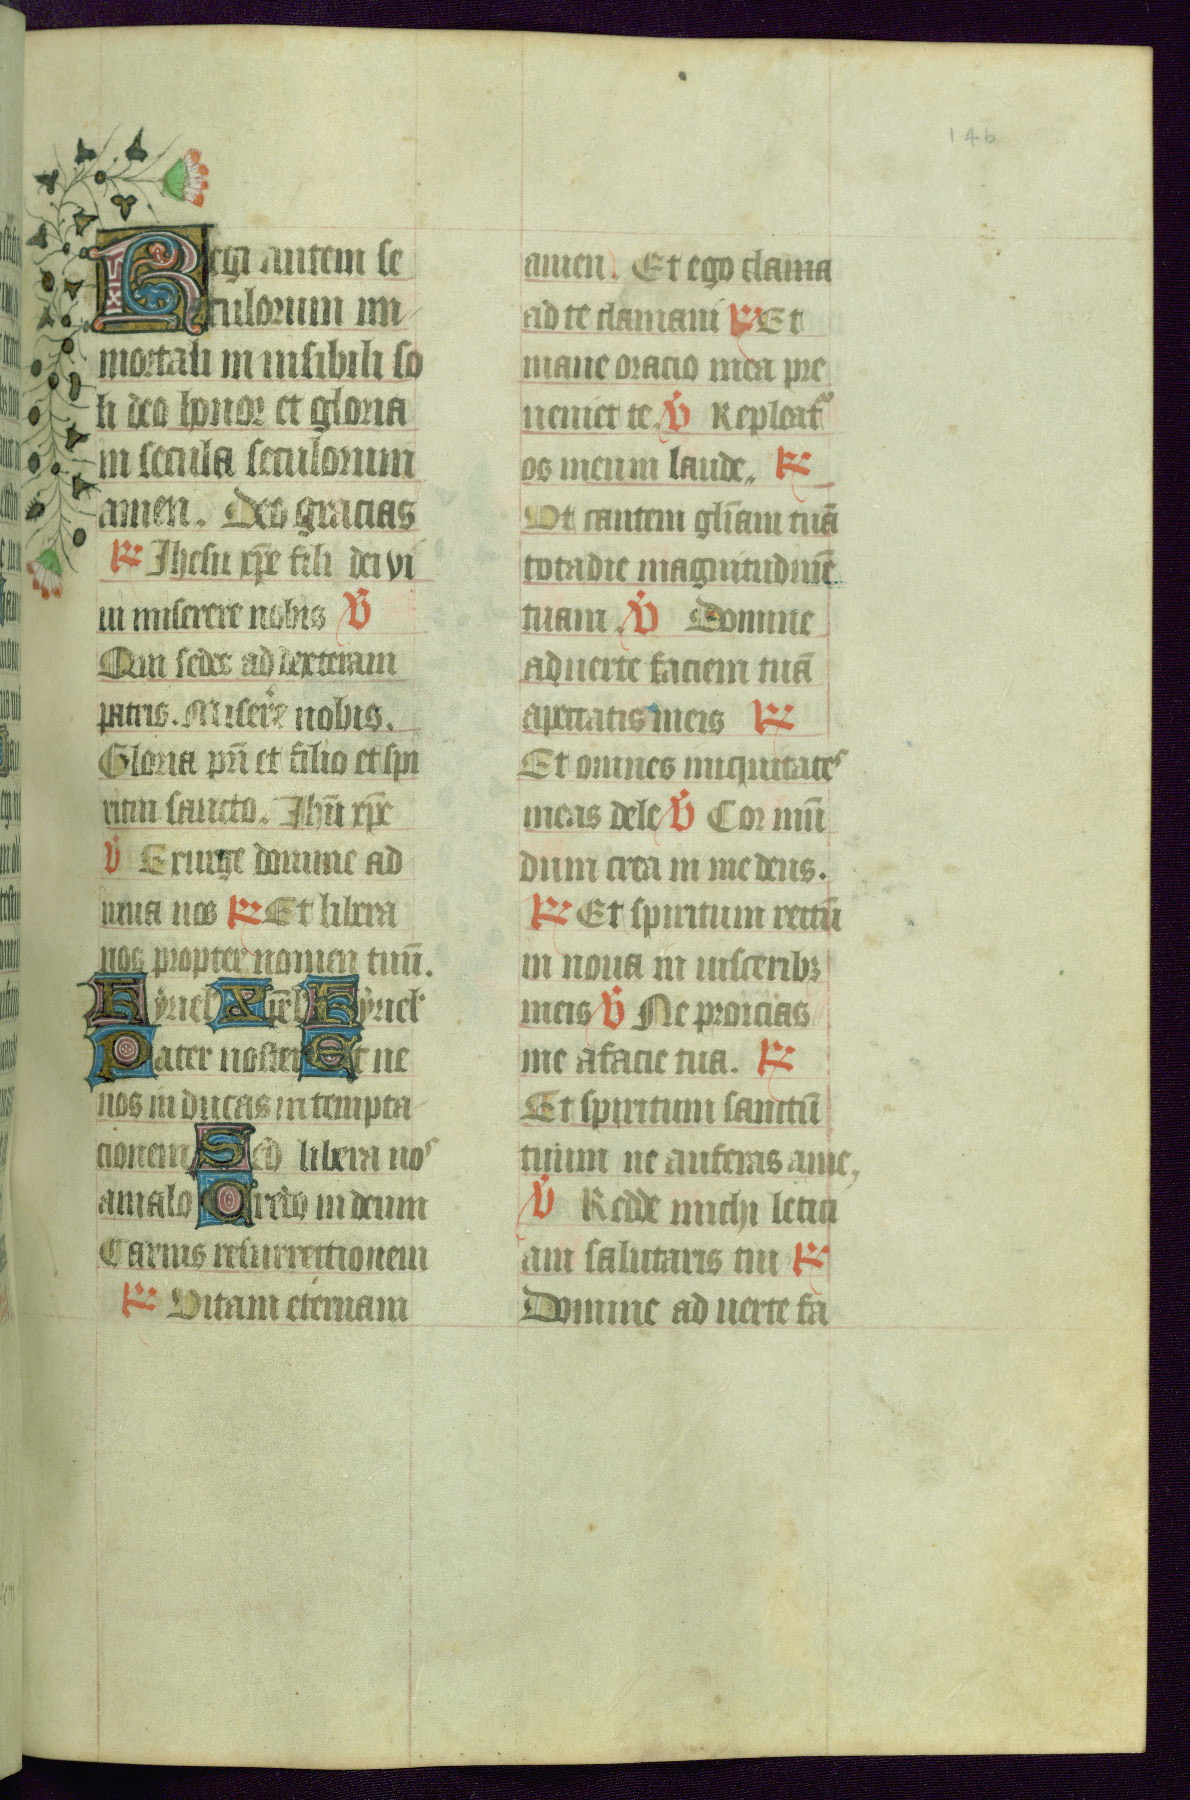 146
Regi autem se
culorum im
mortali in uisibili so
li deo honor et gloria
in secula seculorum
amen. Deo gracias
R Jhesu xp̄e fili dei vi
ui miserere nobis V̄
Qui sedes ad dexteram
patris. Misere nobis.
Gloria pr̄i et filio et spi
ritui sancto. Jhū xp̄e
V̄ Exurge domine ad
iuua nos R Et libera
nos propter nomen tuū.
Kyriel Xp̄el Kyriel
Pater noster Et ne
nos inducas in tempta
cionem Sed libera nos
amalo Credo in deum
Carnis resurrectionem
R Vitam eternam
amen. Et ego clama
ad te clamaui R Et
mane oracio mea pre
ueniet te. V̄ Repleat
os meum laude. R
Vt cantem gl̄iam tuā
tota die magnitudinē
tuam. V̄ Domine
aduerte faciem tuā
apeccatis meis R
Et omnes iniquitates
meas dele V̄ Cor mū
dum crea in me deus.
R Et spiritum rectū
in noua in uisceribꝫ
meis V̄ Ne proicias
me afacie tua. R
Et spiritum sanctū
tuum ne auferas ame,
V̄ Redde michi letici
am salutaris tui R
Domine ad uerte fa